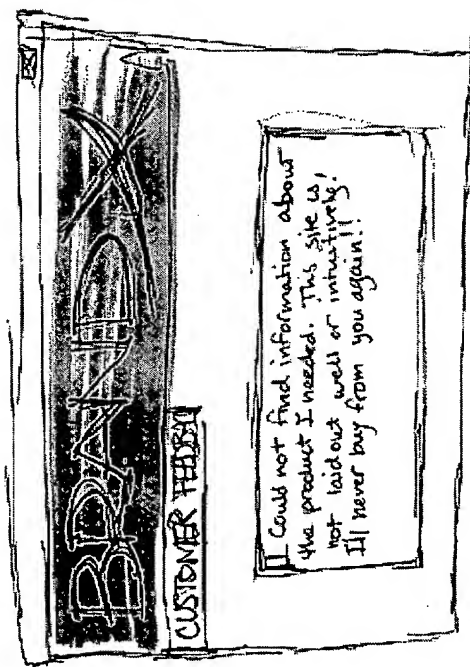 BRAND X
CUSTOMER FEEDBA
I could not find information about
the product I needed. This site is
not laid out well or intuitively.
I'll never buy from you again!!